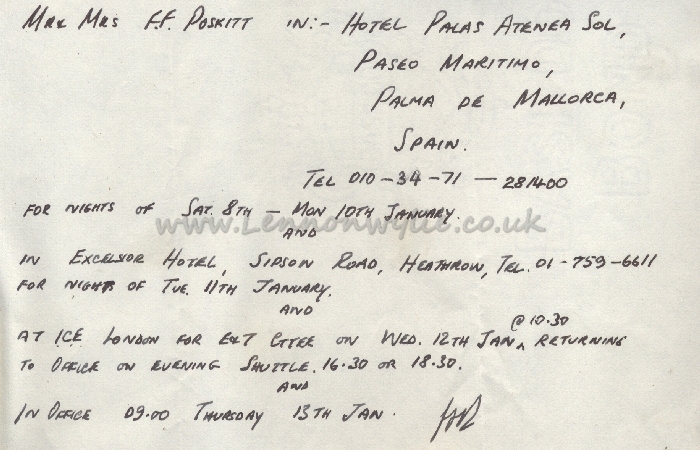 Mr & Mrs F.F. POSKITT IN:- HOTEL PALAS ATENEA SOL,
PASEO MARITIMO,
PALMA DE MALLORCA,
SPAIN.
TEL 010-34-71 - 281400
FOR NIGHTS OF SAT. 8TH - MON 10TH JANUARY.
www.Lennonwylie.co.uk
AND
IN EXCELSIOR HOTEL, SIPSON ROAD, HEATHROW, TEL. 01-759-6611
FOR NIGHT OF TUE. 11TH JANUARY.
AND
@ 10.30
AT ICE LONDON FOR E&T CTTEE ON WED. 12TH JAN, RETURNING
TO OFFICE ON EVENING SHUTTLE. 16.30 OR 18.30.
AND
IN OFFICE 09.00 THURSDAY 13TH JAN.